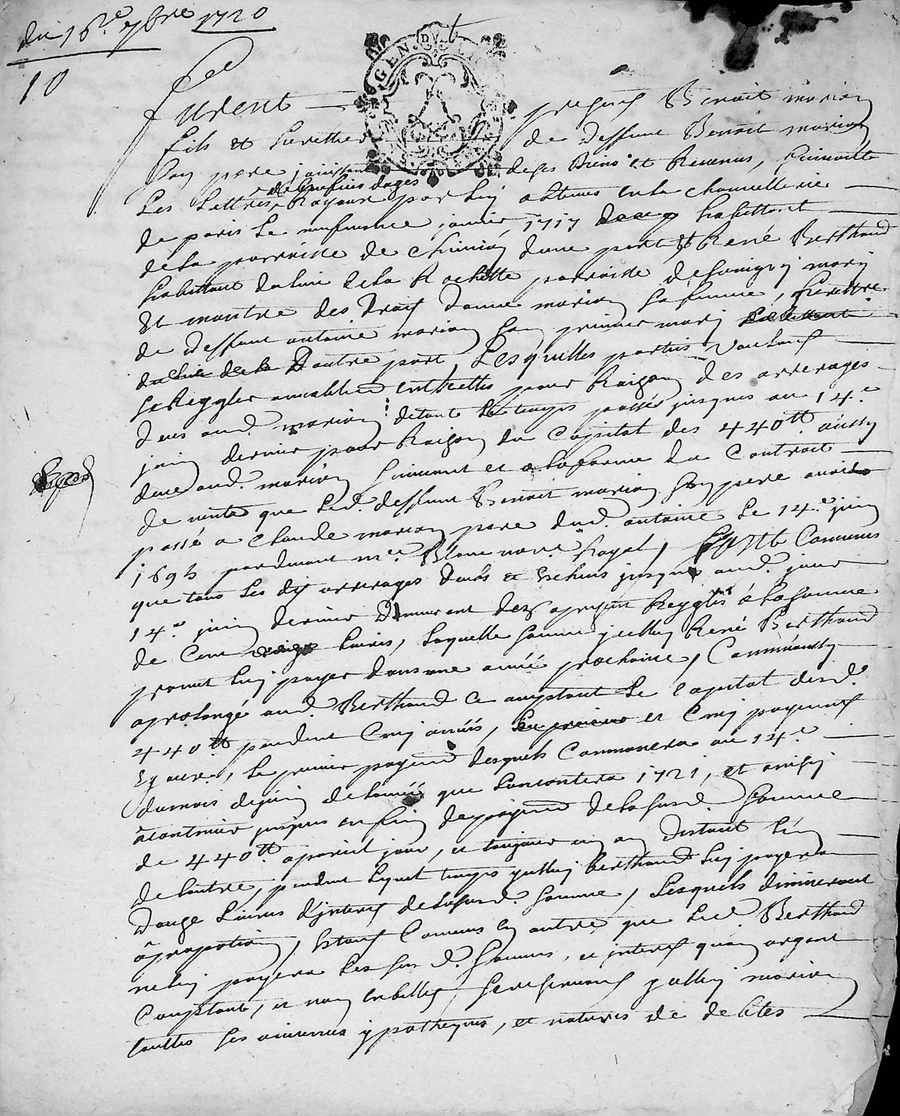 du 16e 7bre 1720
10
GEN. DV
furent presens Benoit marion
fils et herettier de deffunt Benoit marion
son pere jouissant de ses biens et Revenus, suivant
de benefice dages
Les Lettres Royaux par luy obtenus en la chancellerie
de paris le neufieme janvier 1717 habittant
de la parroisse de d'une part Et René Berthaud
habittant du lieu de la Rochette parroisse de mary
Et maistre des droits danne marion sa femme, herettiere
de deffunt antoine marion son premier mary
D'autre part, Lesquelles parties voulans
se Reggler amiablement entrelles pour Raizon des arrerages
deus aud. marion detout le temps passé jusques au 14e
juin dernier pour Raizon du Capital des 440tt aussy
deue aud. marion suivant et a la forme du Contract
de vente que led. deffunt Benoit marion son pere avoit
passé a Claude marion pere dud. antoine Le 14e juin
1693 pardevant me Blanc nore Royal, sont Convenus
que tous les dits arrerages deubs et Escheus jusques aud. jour
14e juin dernier Demeurent dez a present Regglés à la somme
de Cent Livres, Laquelle somme jcelluy René Berthaud
promet luy payer dans une année prochaine, Comm'aussy
a prolongé aud. Berthaud ce acceptant le Capital desd.
440tt pendant Cinq années, et Cinq payemens
Egaux, le premier payement desquels Commancera au 14e
du mois de juin de lannée que Lon contera 1721, et ainsy
à continuer jusques en fin de payement de la susd. somme
de 440tt a pareil jour, et toujours un an distant L'un
de l'autre, pendant lequel temps jcelluy Berthaud luy payera
Douze Livres d'interest de la susd. somme, Lesquels diminueront
à proportion, Estant Convenus en outre que led. Berthaud
ne luy payera les susd. sommes, et interest qu'en argent
Comptant, et non en billets, se reservant jcelluy marion
touttes ses anciennes ypotheques, et natures de debtes